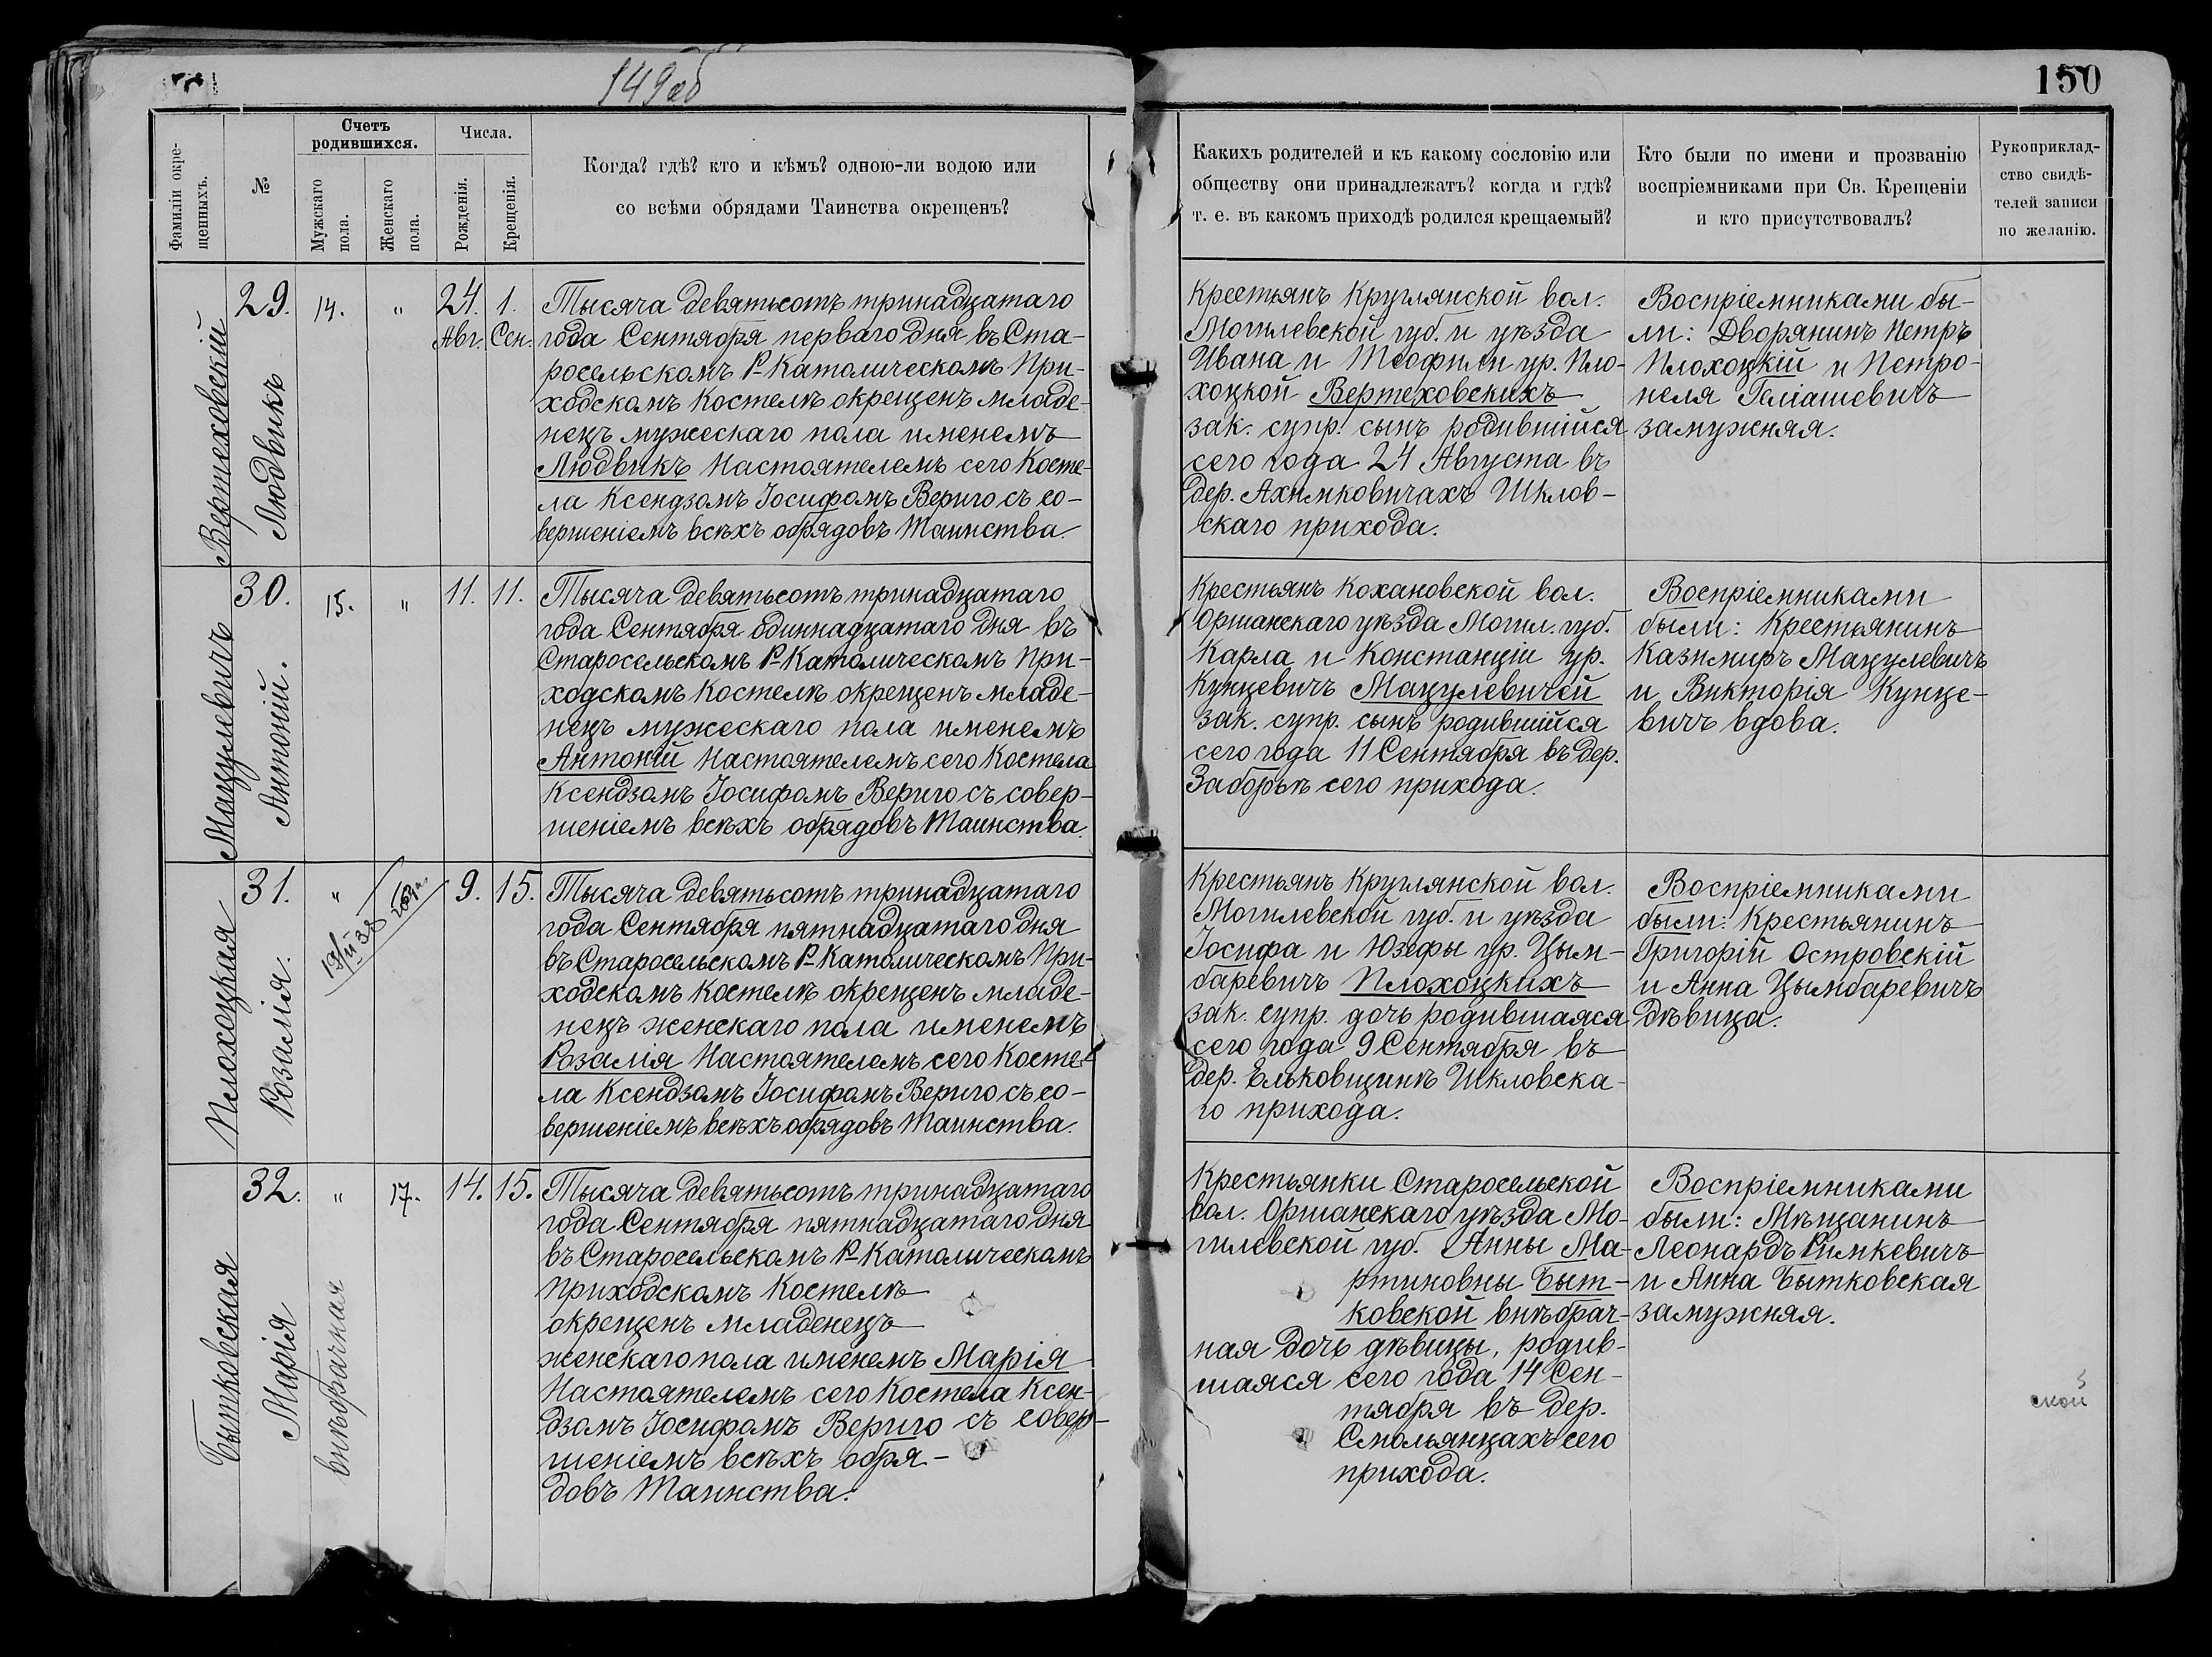 149об
150
Фамиліи окре-
щенныхъ.
№
Счетъ
родившихся.
Мужскаго
пола.
Женскаго
пола.
Числа.
Рожденія.
Крещенія.
Когда? гдѣ? кто и кѣмъ? одною-ли водою или
со всѣми обрядами Таинства окрещенъ?
Какихъ родителей и къ какому сословію или
обществу они принадлежатъ? когда и гдѣ?
т. е. въ какомъ приходѣ родился крещаемый?
Кто были по имени и прозванію
воспріемниками при Св. Крещеніи
и кто присутствовалъ?
Рукоприклад-
ство свидѣ-
телей записи
по желанію.
Вертеховскій
Людвикъ
29.
14.
"
24.
Авг.
1.
Сен.
Тысяча девятьсотъ тринадцатаго
года Сентября перваго дня въ Ста-
росельскомъ Р-Католическомъ При-
ходскомъ Костелѣ окрещенъ младе-
нецъ мужескаго пола именемъ
Людвикъ Настоятелемъ сего Косте-
ла Ксендзомъ Іосифомъ Вериго съ со-
вершеніемъ всѣхъ обрядовъ Таинства.
Крестьянъ Круглянской вол.
Могилевской губ. и уѣзда
Ивана и Теофили ур. Пло-
хоцкой Вертеховскихъ
зак. супр. сынъ родившійся
сего года 24 Августа въ
дер. Ахимковичахъ Шклов-
скаго прихода.
Воспріемниками бы-
ли: Дворянинъ Петръ
Плохоцкій и Петро-
неля Геліашевичъ
замужняя.
Мацулевичъ
Антоній.
30.
15.
"
11.
11.
Тысяча девятьсотъ тринадцатаго
года Сентября одиннадцатаго дня въ
Старосельскомъ Р-Католическомъ При-
ходскомъ Костелѣ окрещенъ младе-
нецъ мужескаго пола именемъ
Антоній Настоятелемъ сего Костела
Ксендзомъ Іосифомъ Вериго съ совер-
шеніемъ всѣхъ обрядовъ Таинства.
Крестьянъ Кохановской вол.
Оршанскаго уѣзда Могил. губ.
Карла и Констанціи ур.
Кунцевичъ Мацулевичей
зак. супр. сынъ родившійся
сего года 11 Сентября въ дер.
Заборьѣ сего прихода.
Воспріемниками
были: Крестьянинъ
Казимиръ Мацулевичъ
и Викторія Кунце-
вичъ вдова.
Плохоцкая
Розалія.
31.
"
9.
15.
Тысяча девятьсотъ тринадцатаго
года Сентября пятнадцатаго дня
въ Старосельскомъ Р-Католическомъ При-
ходскомъ Костелѣ окрещенъ младе-
нецъ женскаго пола именемъ
Розалія Настоятелемъ сего Косте-
ла Ксендзомъ Іосифомъ Вериго съ со-
вершеніемъ всѣхъ обрядовъ Таинства.
Крестьянъ Круглянской вол.
Могилевской губ. и уѣзда
Іосифа и Юзефы ур. Цым-
баревичъ Плохоцкихъ
зак. супр. дочь родившаяся
сего года 9 Сентября въ
дер. Ельковщинѣ Шкловска-
го прихода.
Воспріемниками
были: Крестьянинъ
Григорій Островскій
и Анна Цымбаревичъ
дѣвица.
Бытковская
Марія
внѣбрачная
32.
"
17.
14.
15.
Тысяча девятьсотъ тринадцатаго
года Сентября пятнадцатаго дня
въ Старосельскомъ Р-Католическомъ
Приходскомъ Костелѣ
окрещенъ младенецъ
женскаго пола именемъ Марія
Настоятелемъ сего Костела Ксен-
дзомъ Іосифомъ Вериго съ совер-
шеніемъ всѣхъ обря-
довъ Таинства.
Крестьянки Старосельской
вол. Оршанскаго уѣзда Мо-
гилевской губ. Анны Ма-
ртиновны Быт-
ковской внѣбрач-
ная дочь дѣвицы, родив-
шаяся сего года 14 Сен-
тября въ дер.
Смольянцахъ сего
прихода.
Воспріемниками
были: Мѣщанинъ
Леонардъ Римкевичъ
и Анна Бытковская
замужняя.
ской